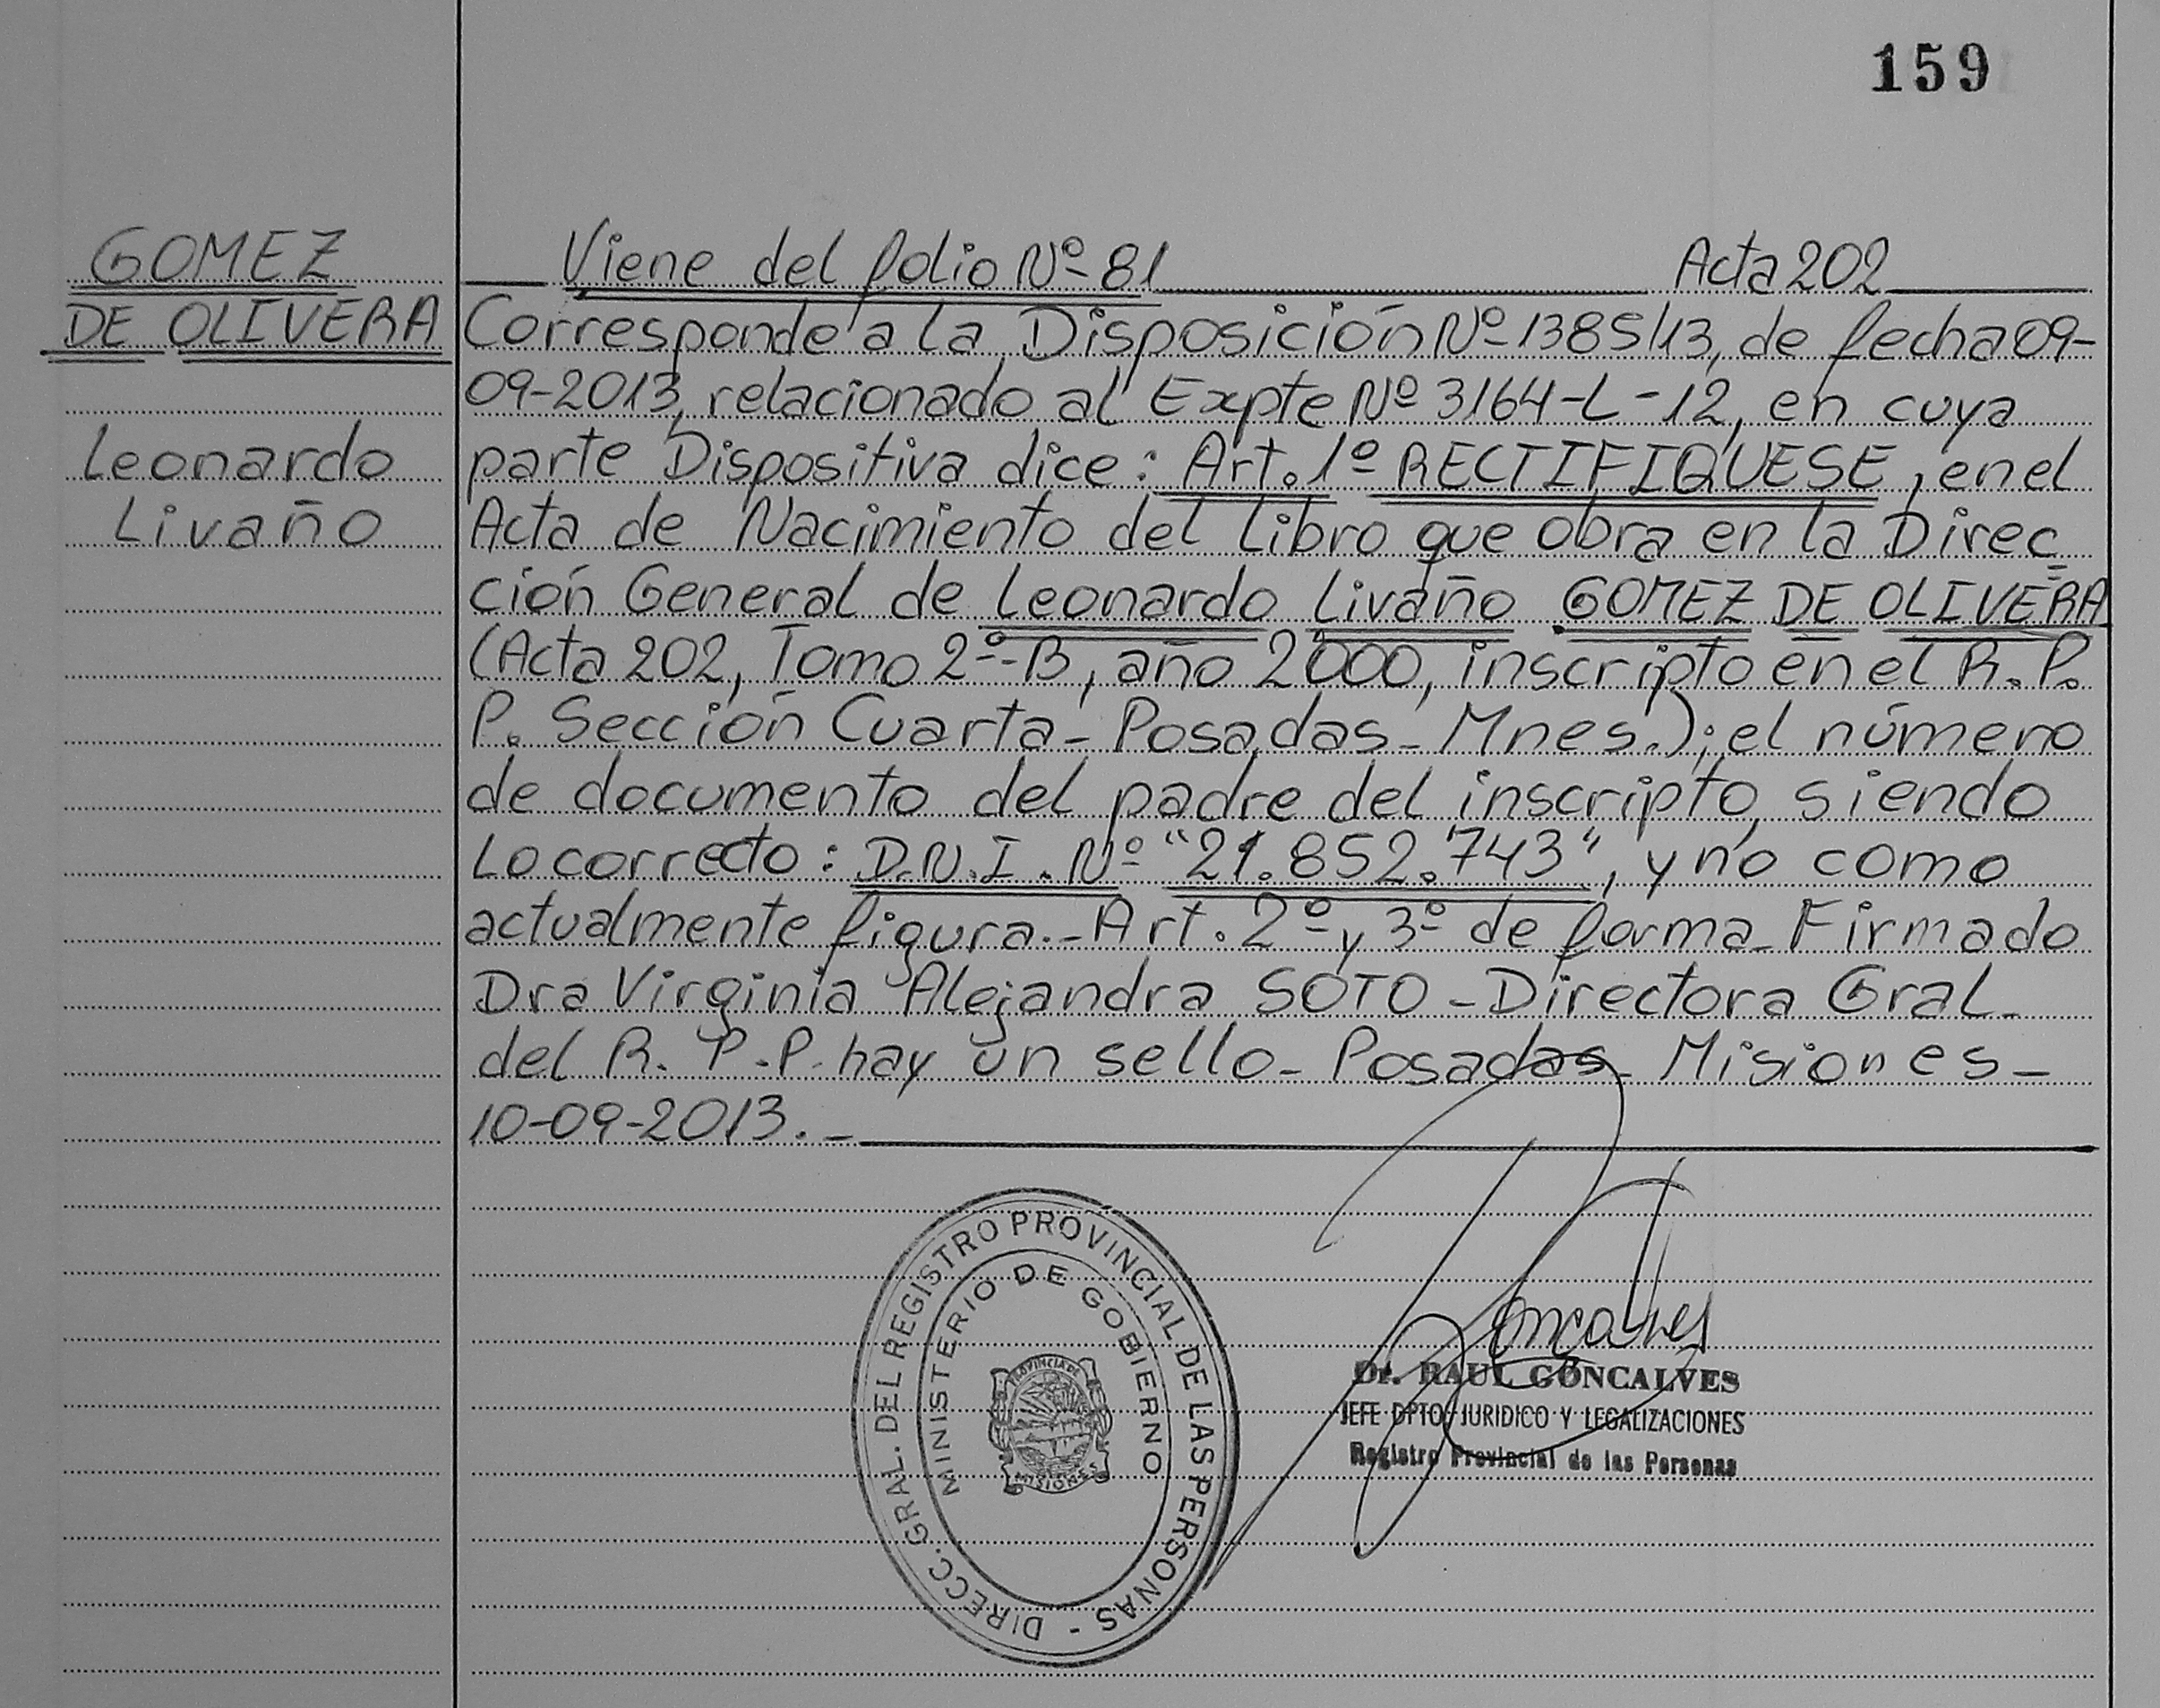 159
GOMEZ
DE OLIVERA
Leonardo
Livaño
Viene del folio Nº 81 Acta 202
Corresponde a la Disposición Nº 1385/13, de fecha 09-
09-2013, relacionado al Expte Nº 3164-L-12, en cuya
parte Dispositiva dice: Art. 1º RECTIFIQUESE, en el
Acta de Nacimiento del libro que obra en la Direc=
ción General de Leonardo Livaño GOMEZ DE OLIVERA
(Acta 202, Tomo 2º-B, año 2000, inscripto en el R. P.
P. Sección Cuarta - Posadas - Mnes.); el número
de documento del padre del inscripto, siendo
Lo correcto: D.N.I. Nº "21.852.743", y no como
actualmente figura.- Art. 2º y 3º de forma - Firmado
Dra Virginia Alejandra SOTO - Directora Gral -
del R. P. P. hay un sello - Posadas - Misiones -
10-09-2013. -
DIRECC. GRAL. DEL REGISTRO PROVINCIAL DE LAS PERSONAS -
MINISTERIO DE GOBIERNO
PROVINCIA DE
MISIONES
Goncalves
Dr. RAUL GONCALVES
JEFE DPTO JURIDICO Y LEGALIZACIONES
Registro Provincial de las Personas